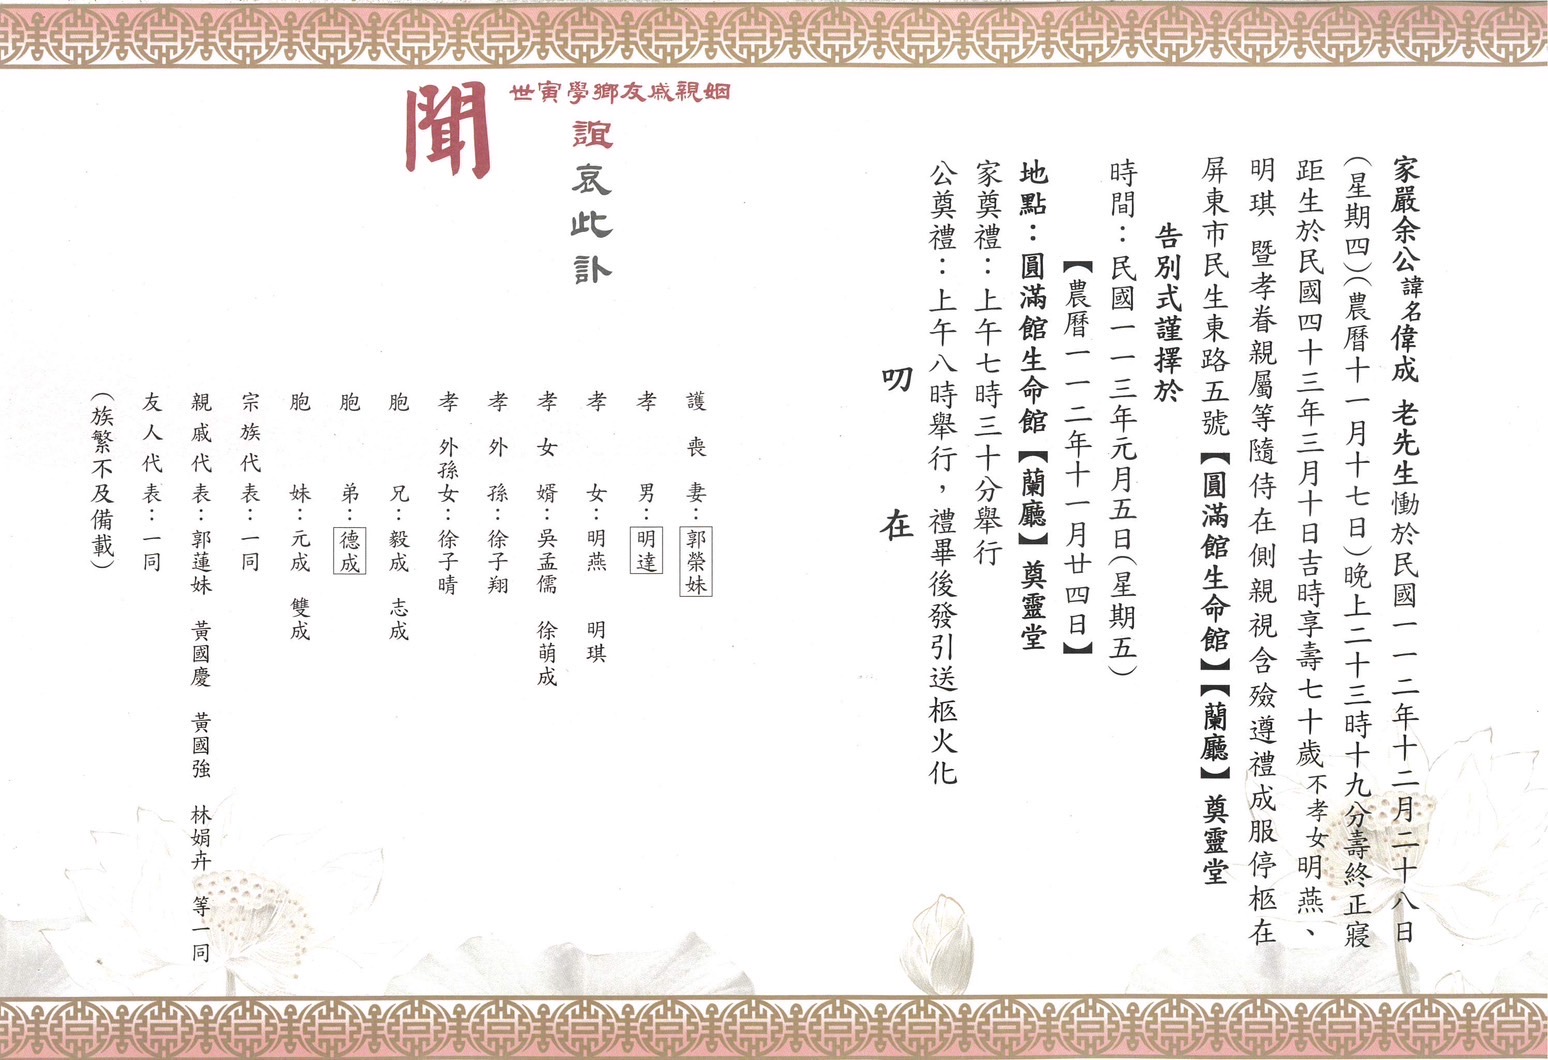 家嚴余公諱名偉成 老先生慟於民國一一二年十二月二十八日
(星期四)(農曆十一月十七日)晚上二十三時十九分壽終正寢
距生於民國四十三年三月十日吉時享壽七十歲不孝女明燕、
明琪 暨孝眷親屬等隨侍在側親視含殮遵禮成服停柩在
屏東市民生東路五號【圓滿館生命館】【蘭廳】奠靈堂
告別式謹擇於
時間：民國一一三年元月五日(星期五)
【農曆一一二年十一月廿四日】
地點：圓滿館生命館【蘭廳】奠靈堂
家奠禮：上午七時三十分舉行
公奠禮：上午八時舉行，禮畢後發引送柩火化
叨 在
姻親戚友鄉學寅世
誼哀此訃
聞
護喪妻：郭榮妹
孝男：明達
孝女：明燕 明琪
孝女婿：吳孟儒 徐萌成
孝外孫：徐子翔
孝外孫女：徐子晴
胞兄：毅成 志成
胞弟：德成
胞妹：元成 雙成
宗族代表：一同
親戚代表：郭蓮妹 黃國慶 黃國強 林娟卉 等一同
友人代表：一同
(族繁不及備載)